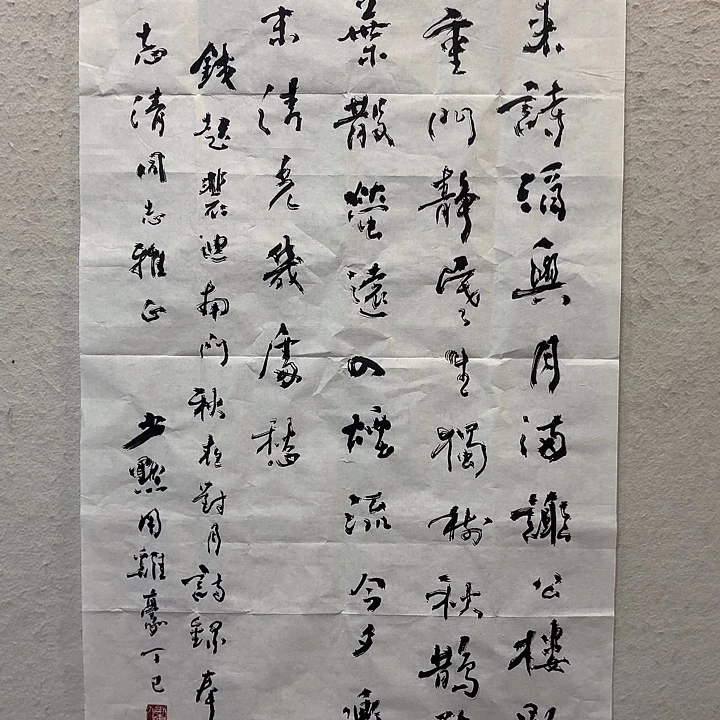 來詩酒興月滿謝公樓影
重門靜寒生獨樹秋鵲
葉散螢遠入煙流今夕
末清光幾處愁
錢起裴迪南門秋夜對月詩錄奉
志清同志雅正
少默用雞毫丁巳